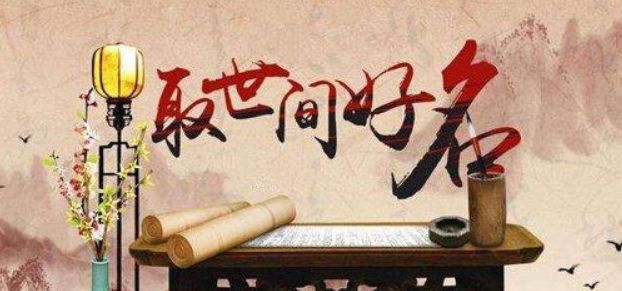 取世间好名